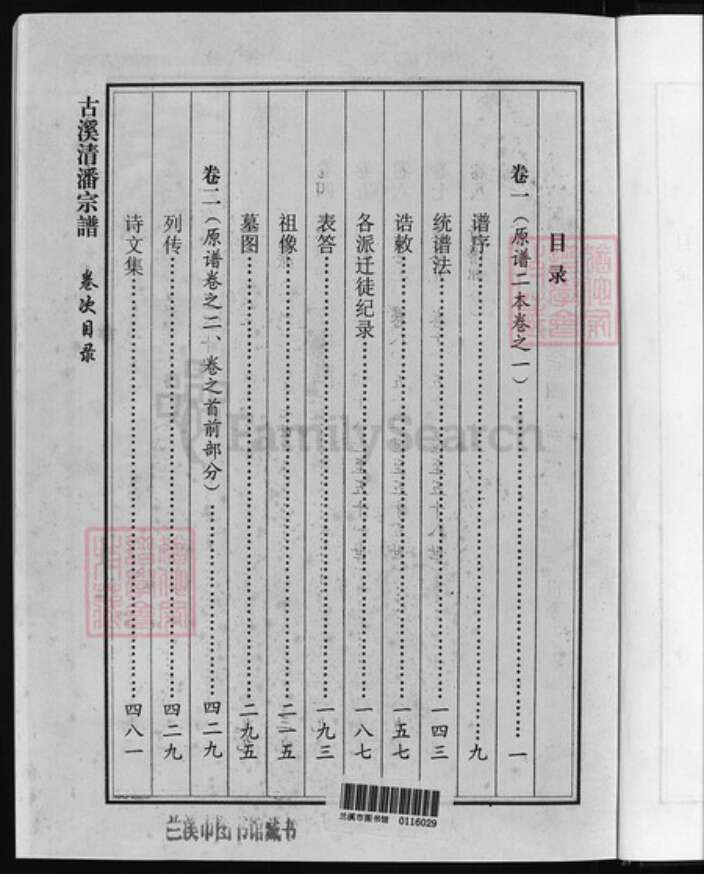 目录
卷一（原谱二本卷之一）……一
谱序……九
统谱法……一四三
诰敕……一五七
各派迁徒纪录……一八七
表答……一九三
祖像……二一五
墓图……二九五
卷二（原谱卷之二、卷之首前部分）……四二九
列传……四二九
诗文集……四八一
古溪清潘宗譜 卷次目录
兰溪市图书馆藏书
兰溪市图书馆 0116029
FamilySearch